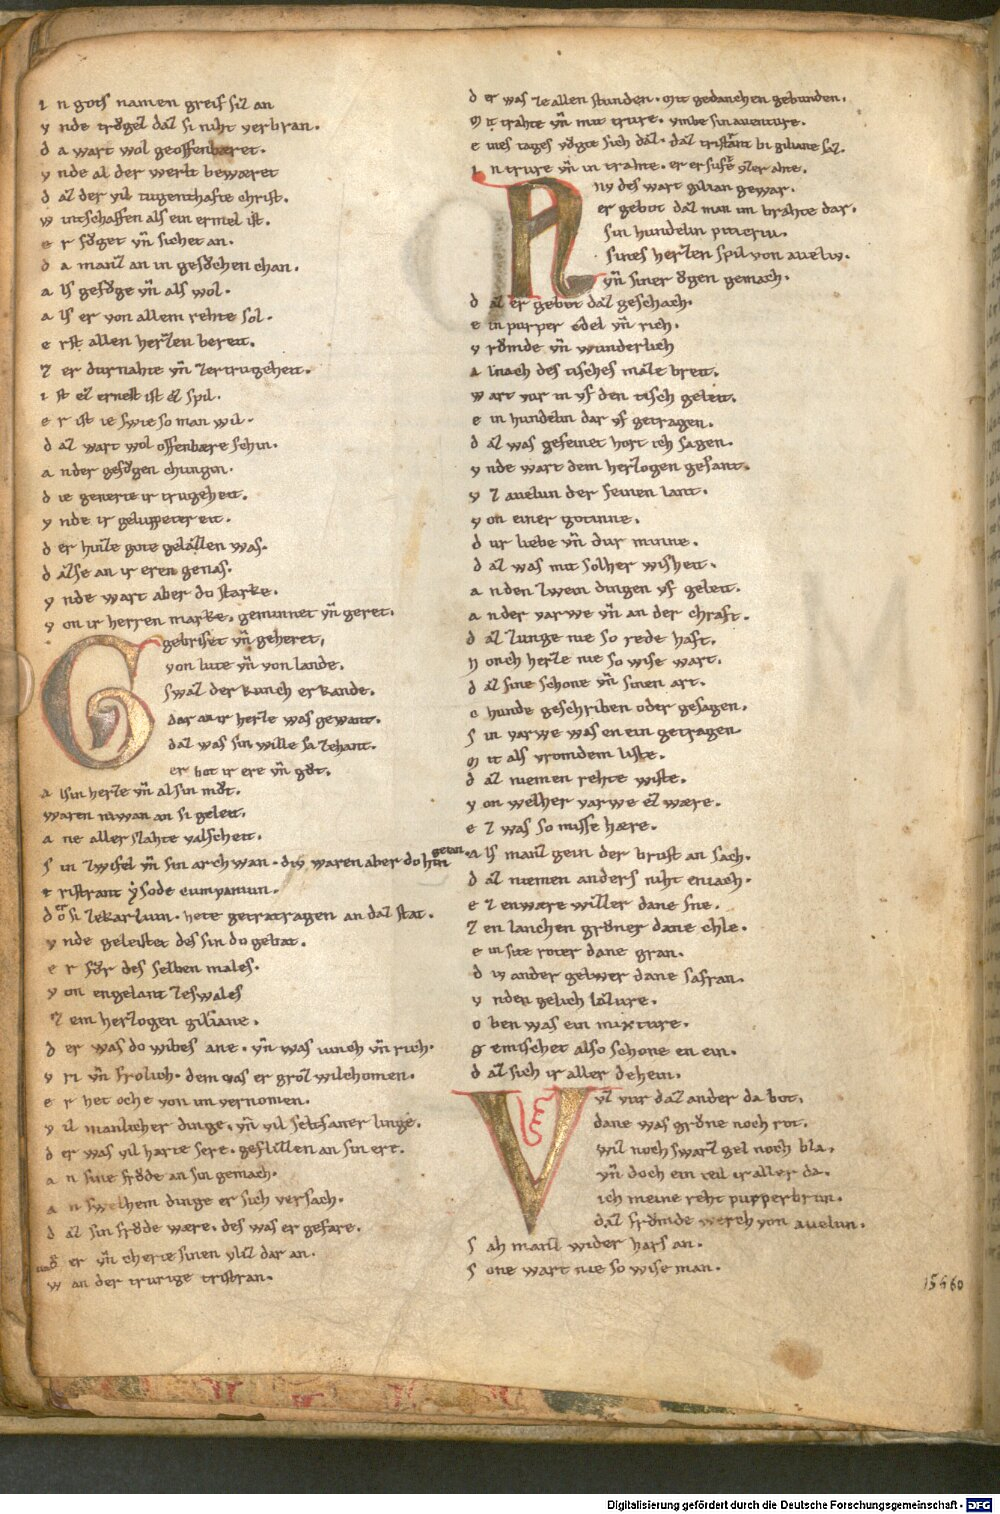 i n gots namen greif siz an
v nde trv̊gez daz si niht verbran.
d a wart wol geoffenbæret.
v nde al der werlt bewæret
d az der vil tugenthafte christ.
w intschaffen als ein ermel ist.
e r fv̊get vñ sůchet an.
d a manz an in gesv̊chen chan.
a ls gefv̊ge vñ als wol.
a ls er von allem rehte sol.
e rst allen herzen bereit.
z er durnahte vñ zertrugeheit.
i st ez ernest ist ez spil.
e r ist ie swie so man wil.
d az wart wol offenbære schin.
a n der gefv̊gen chungin.
d ie generte ir trugeheit.
v nde ir geluppeter eit.
d er hinze gote gelazzen was.
d az se an ir eren genas.
v nde wart aber do starke.
v on ir herren marke. geminnet vñ geret.
G gepriset vñ geheret.
von lute vñ von lande.
swaz der kunch erkande.
dar an ir herze was gewant.
daz was sin wille sa zehant.
er bot ir ere vñ gv̊t.
a l sin herze vñ al sin mv̊t.
waren niwan an si geleit.
a ne aller slahte valscheit.
s in zwifel vñ sin archwan. div waren aber do hin getan.
t ristrant ysode cumpaniun.
d o er si zekarliun. hete getratragen an daz stat.
v nde geleistet des sin do gebat.
e r fv̊r des selben males.
v on engelant zeswales
z em herzogen gilane.
d er was do wibes ane. vñ was iunch vñ rich.
v ri vñ frolich. dem was er groz wilchomen.
e r het oche von im vernomen.
v il manlicher dinge. vñ vil seltsaner linge.
d er was vil harte sere. geflizzen an sin ere.
a n sine frv̊de an sin gemach.
a n swelhem dinge er sich versach.
d az sin frv̊de wære. des was er gefare.
er vñ cherte sinen vliz dar an.
w an der trurige tristran.
d er was ze allen stunden. mit gedanchen gebunden.
m it trahte vñ mit trure. vmbe sin auenture.
e ines tages vv̊gte sich daz. daz tristant bi gilane saz.
i n trure vñ in trahte. er ersufte vz er ahte.
N Nv des wart gilan gewar.
er gebot daz man im brahte dar.
sin hundelin piticriu.
sines herzen spil von auelun.
vñ siner ǒgen gemach.
d az er gebot daz geschach.
e in purper edel vñ rich.
v rǒmde vñ wunderlich
a l nach des tisches maze breit.
w art vur in vf den tisch geleit.
e in hundelin dar vf getragen.
d az was gefeinet hort ich sagen.
v nde wart dem herzogen gesant.
v z auelun der feinen lant.
v on einer gotinne.
d ur liebe vñ dur minne.
d az was mit solher wisheit.
a n den zwein dingen vf geleit.
a n der varwe vñ an der chraft.
d az zunge nie so rede haft.
n och herze nie so wise wart.
d az sine schone vñ sinen art.
c hunde geschriben oder gesagen.
s in varwe was en ein getragen
m it als vromdem liste.
d az niemen rehte wiste.
v on welher varwe ez wære.
e z was so misse hære.
a ls manz gein der brust an sach.
d az niemen anders niht eniach.
e z enwære wizzer dane sne.
z en lanchen grv̊ner dane chle.
e in site roter dane gran.
d iv ander gelwer dane safran.
v nden gelich lazure.
o ben was ein mixture.
g emischet also schone en ein.
d az sich ir aller dehein.
V vz vur daz ander da bot.
dane was grv̊ne noch rot.
wiz noch swarz gel noch bla.
vñ doch ein teil ir aller da.
ich meine reht purperbrun.
daz frǒmde werch von auelun.
s ah manz wider hars an.
s one wart nie so wise man.
15560
Digitalisierung gefördert durch die Deutsche Forschungsgemeinschaft - DFG